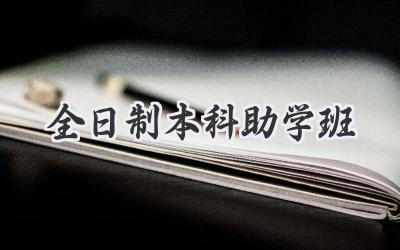 全日制本科助学班